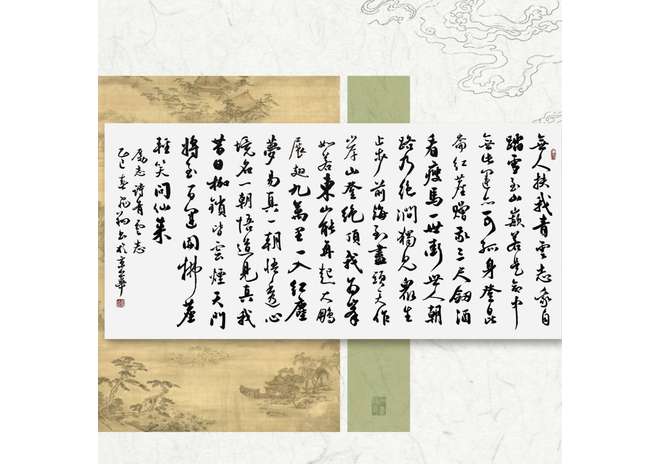 無人扶我青雲志我自
踏雪至山巔若是命中
無此運亦可孤身登崑
崙紅塵贈我三尺劍酒
看瘦馬一世街世人朝
路乃絕澗獨見眾生
止步前海到盡頭天作
岸山登絕頂我為峯
如若東山能再起大鵬
展翅九萬里一入紅塵
夢易真一朝悟透心
境名一朝悟道見真我
昔日枷鎖皆雲煙天門
將至百運開拂塵
輕笑問仙來
勵志詩青雲志
乙巳春書於京華